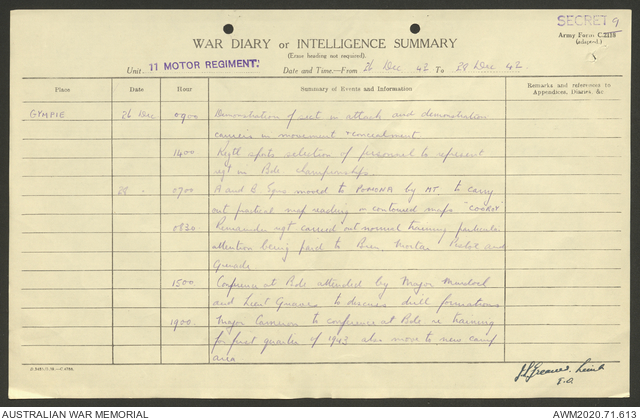 SECRET 9
Army Form C.2118
(adapted.)
WAR DIARY or INTELLIGENCE SUMMARY
(Erase heading not required).
Unit. 11 MOTOR REGIMENT. Date and Time.—From 26 Dec 42 To 28 Dec 42.
Place Date Hour Summary of Events and Information Remarks and references to Appendices, Diaries, &c
GYMPIE 26 Dec 0900 Demonstration of sect in attack and demonstration
carriers in movement & concealment
1400 Regtl sports selection of personnel to represent
regt in Bde championships.
28 0700 A and B Sqns moved to POMONA by MT. to carry
out practical map reading on contoured maps "COOROY"
0830 Remainder regt carried out normal training particular
attention being paid to Bren, Mortar and
Grenade
1500 Conference at Bde attended by Major Murdoch
and Lieut to discuss drill formations
1900 Major Cameron to conference at Bde re training
for first quarter of 1943 also move to new camp
area
Lieut
AUSTRALIAN WAR MEMORIAL
AWM2020.71.613